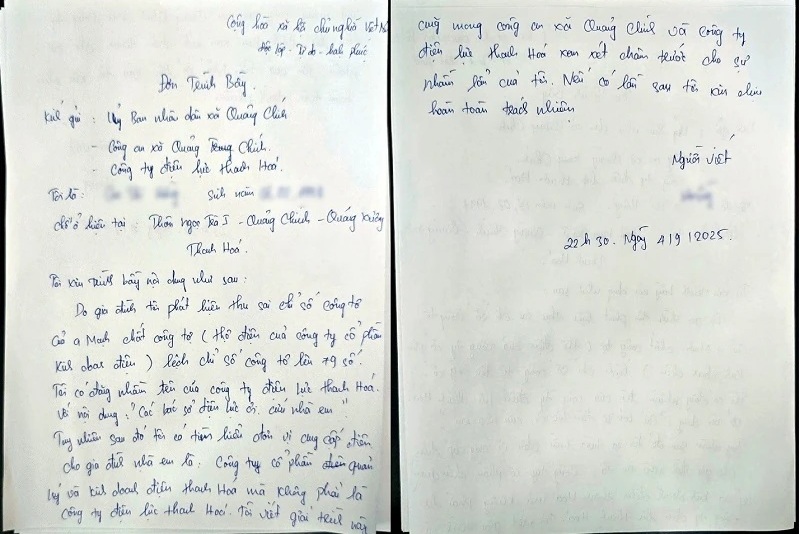 Cộng hòa xã hội chủ nghĩa Việt N
Độc lập - Tự do - hạnh phúc
Đơn Trình Bầy.
Kính gửi : Uỷ Ban nhân dân xã Quảng Chính
- Công an xã Quảng Chính.
- Công ty điện lực Thanh Hoá.
Tôi là : sinh năm
chỗ ở hiện tại : Thôn Ngọc Trà I - Quảng Chính - Quảng Xương
Thanh Hoá.
Tôi xin trình bầy nội dung như sau :
Do gia đình tôi phát hiện thu sai chỉ số công tơ
a Mạnh chốt công tơ ( thợ điện của công ty cổ phần
kinh doanh điện ) lệch chỉ số công tơ lên 79 số.
Tôi có đăng nhầm tên của công ty điện lực Thanh Hoá.
Với nội dung : " Các bác sở điện lực ơi. cứu nhà em "
Tuy nhiên sau đó tôi có tìm hiểu đơn vị cung cấp điện
cho gia đình nhà em là : Công ty cổ phần quản
lý và kinh doanh điện Thanh Hoá mà không phải là
công ty điện lực Thanh Hoá. Tôi viết giải trình này
cũng mong công an xã Quảng Chính và công ty
điện lực Thanh Hoá xem xét châm trước cho sự
nhầm lẫn của tôi. Nếu có lần sau tôi xin chịu
hoàn toàn trách nhiệm
Người viết
22h 30. Ngày 4/9/2025.